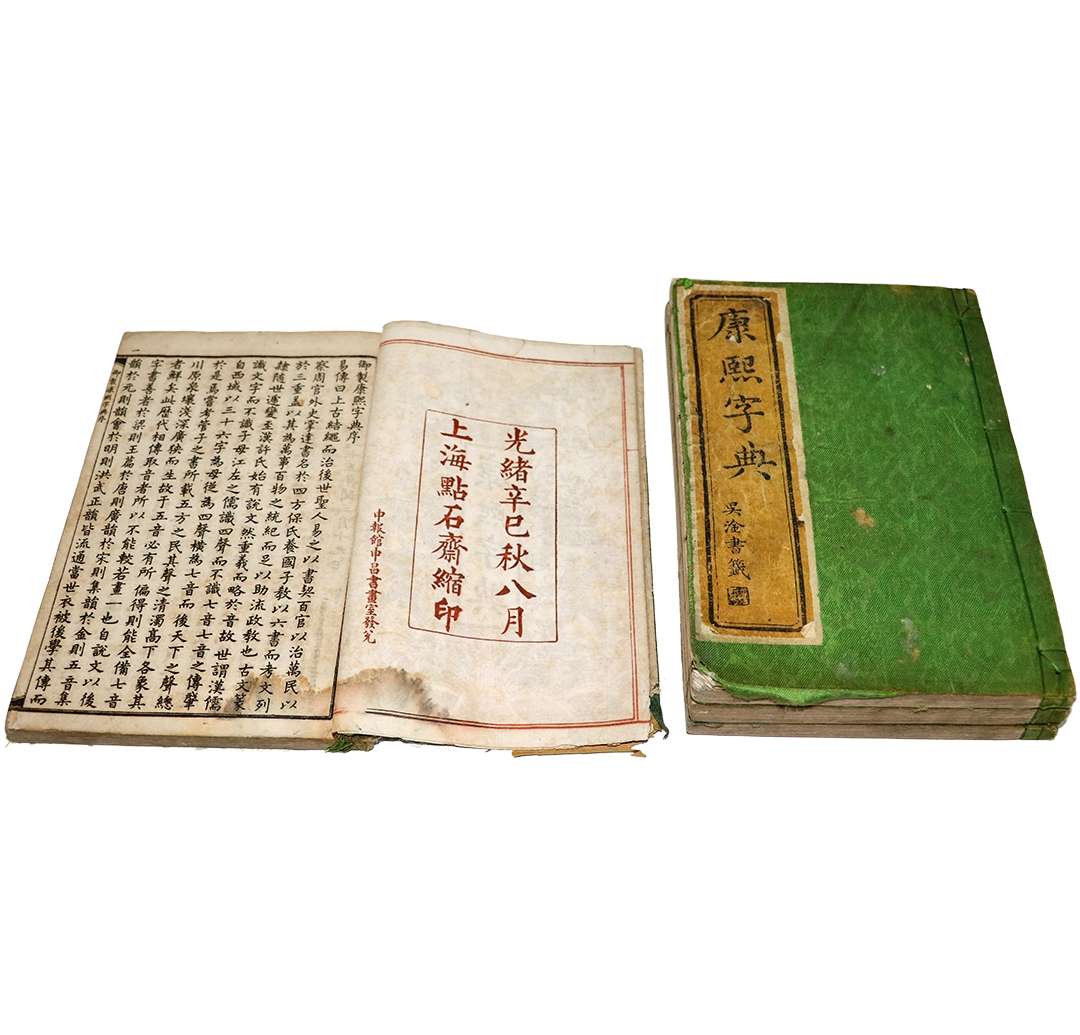 康熙字典
吳淦書籤
光緒辛巳秋八月
上海點石齋縮印
申報館申昌書畫室發兌
御製康熙字典序
易傳曰上古結繩而治後世聖人易之以書契百官以治萬民以
察周官外史掌達書名於四方保氏養國子教以六書而考文列
於三重蓋以其為萬事百物之統紀而足以助流政教也古文篆
隸隨世遞變至漢許氏始有說文然重義而略於音故世謂漢儒
識文字而不識子母江左之儒識四聲而不識七音七音之傳肇
自西域以三十六字為母從為四聲橫為七音而後天下之聲總
於是焉嘗考管子之書所載五方之民其聲之清濁高下各象其
川原泉壤淺深廣狹而生故于五音必有所偏得則能全備七音
者鮮矣此歷代相傳取音者所以不能較若畫一也自說文以後
字書善者於梁則玉篇於唐則廣韻於宋則集韻於金則五音集
韻於元則韻會於明則洪武正韻皆流通當世衣被後學其傳而
御製康熙字典序